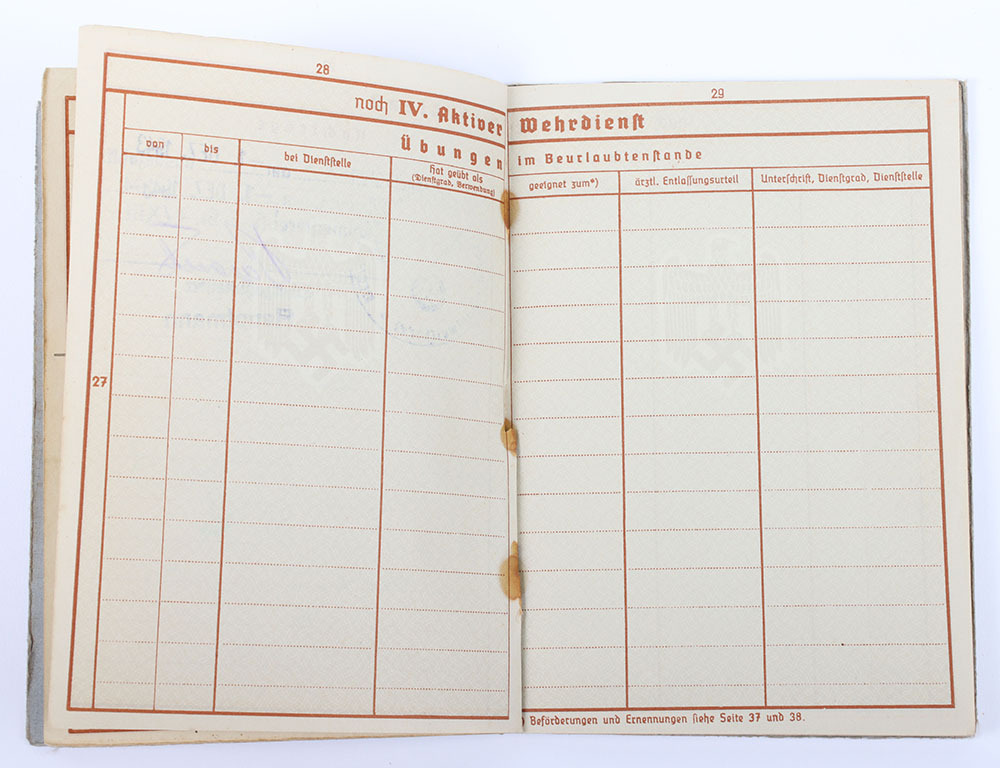 28
noch IV. Aktiver
Übungen
von
bis
bei Dienststelle
Hat geübt als
(Dienstgrad, Verwendung)
27
29
Wehrdienst
im Beurlaubtenstande
geeignet zum*)
ärztl. Entlassungsurteil
Unterschrift, Dienstgrad, Dienststelle
) Beförderungen und Ernennungen siehe Seite 37 und 38.